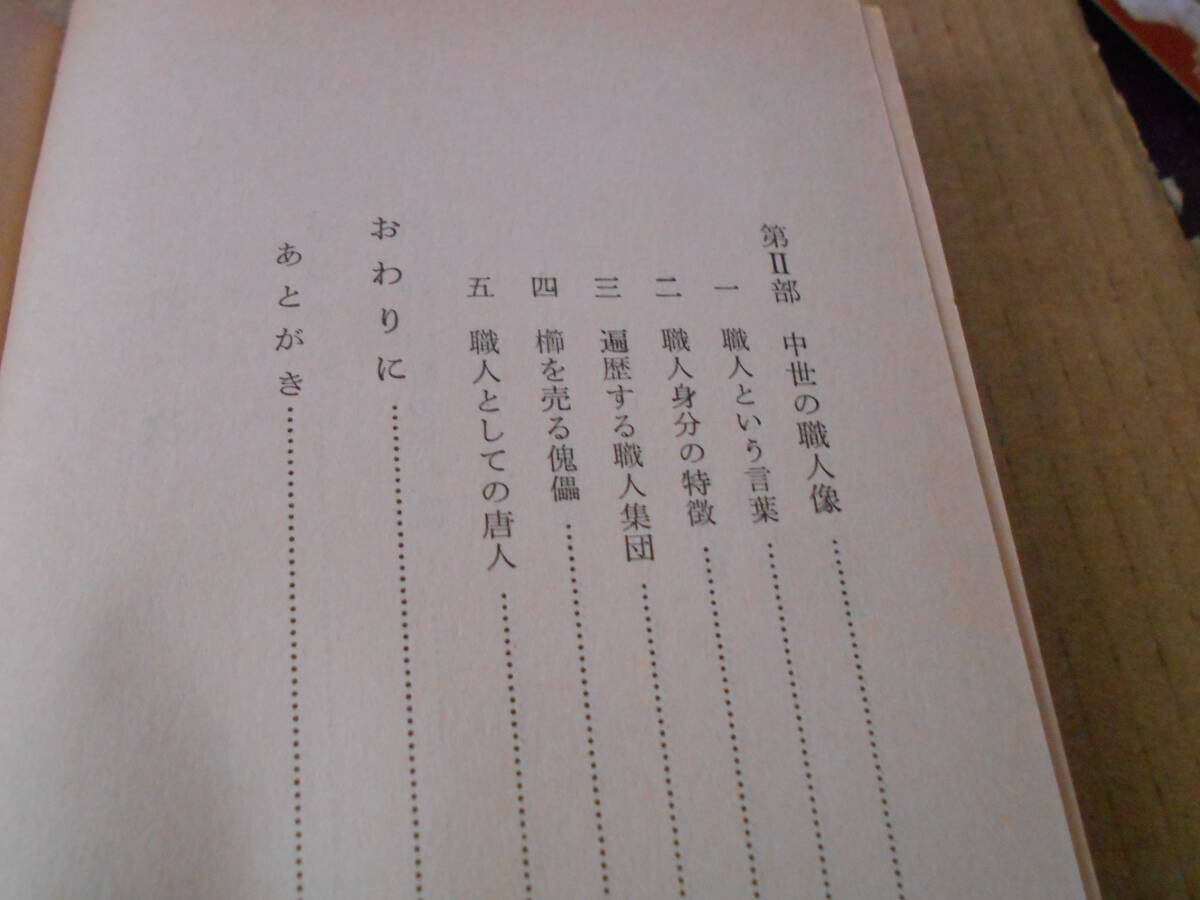 第Ⅱ部 中世の職人像
一 職人という言葉
二 職人身分の特徴
三 遍歴する職人集団
四 櫛を売る傀儡
五 職人としての唐人
おわりに
あとがき